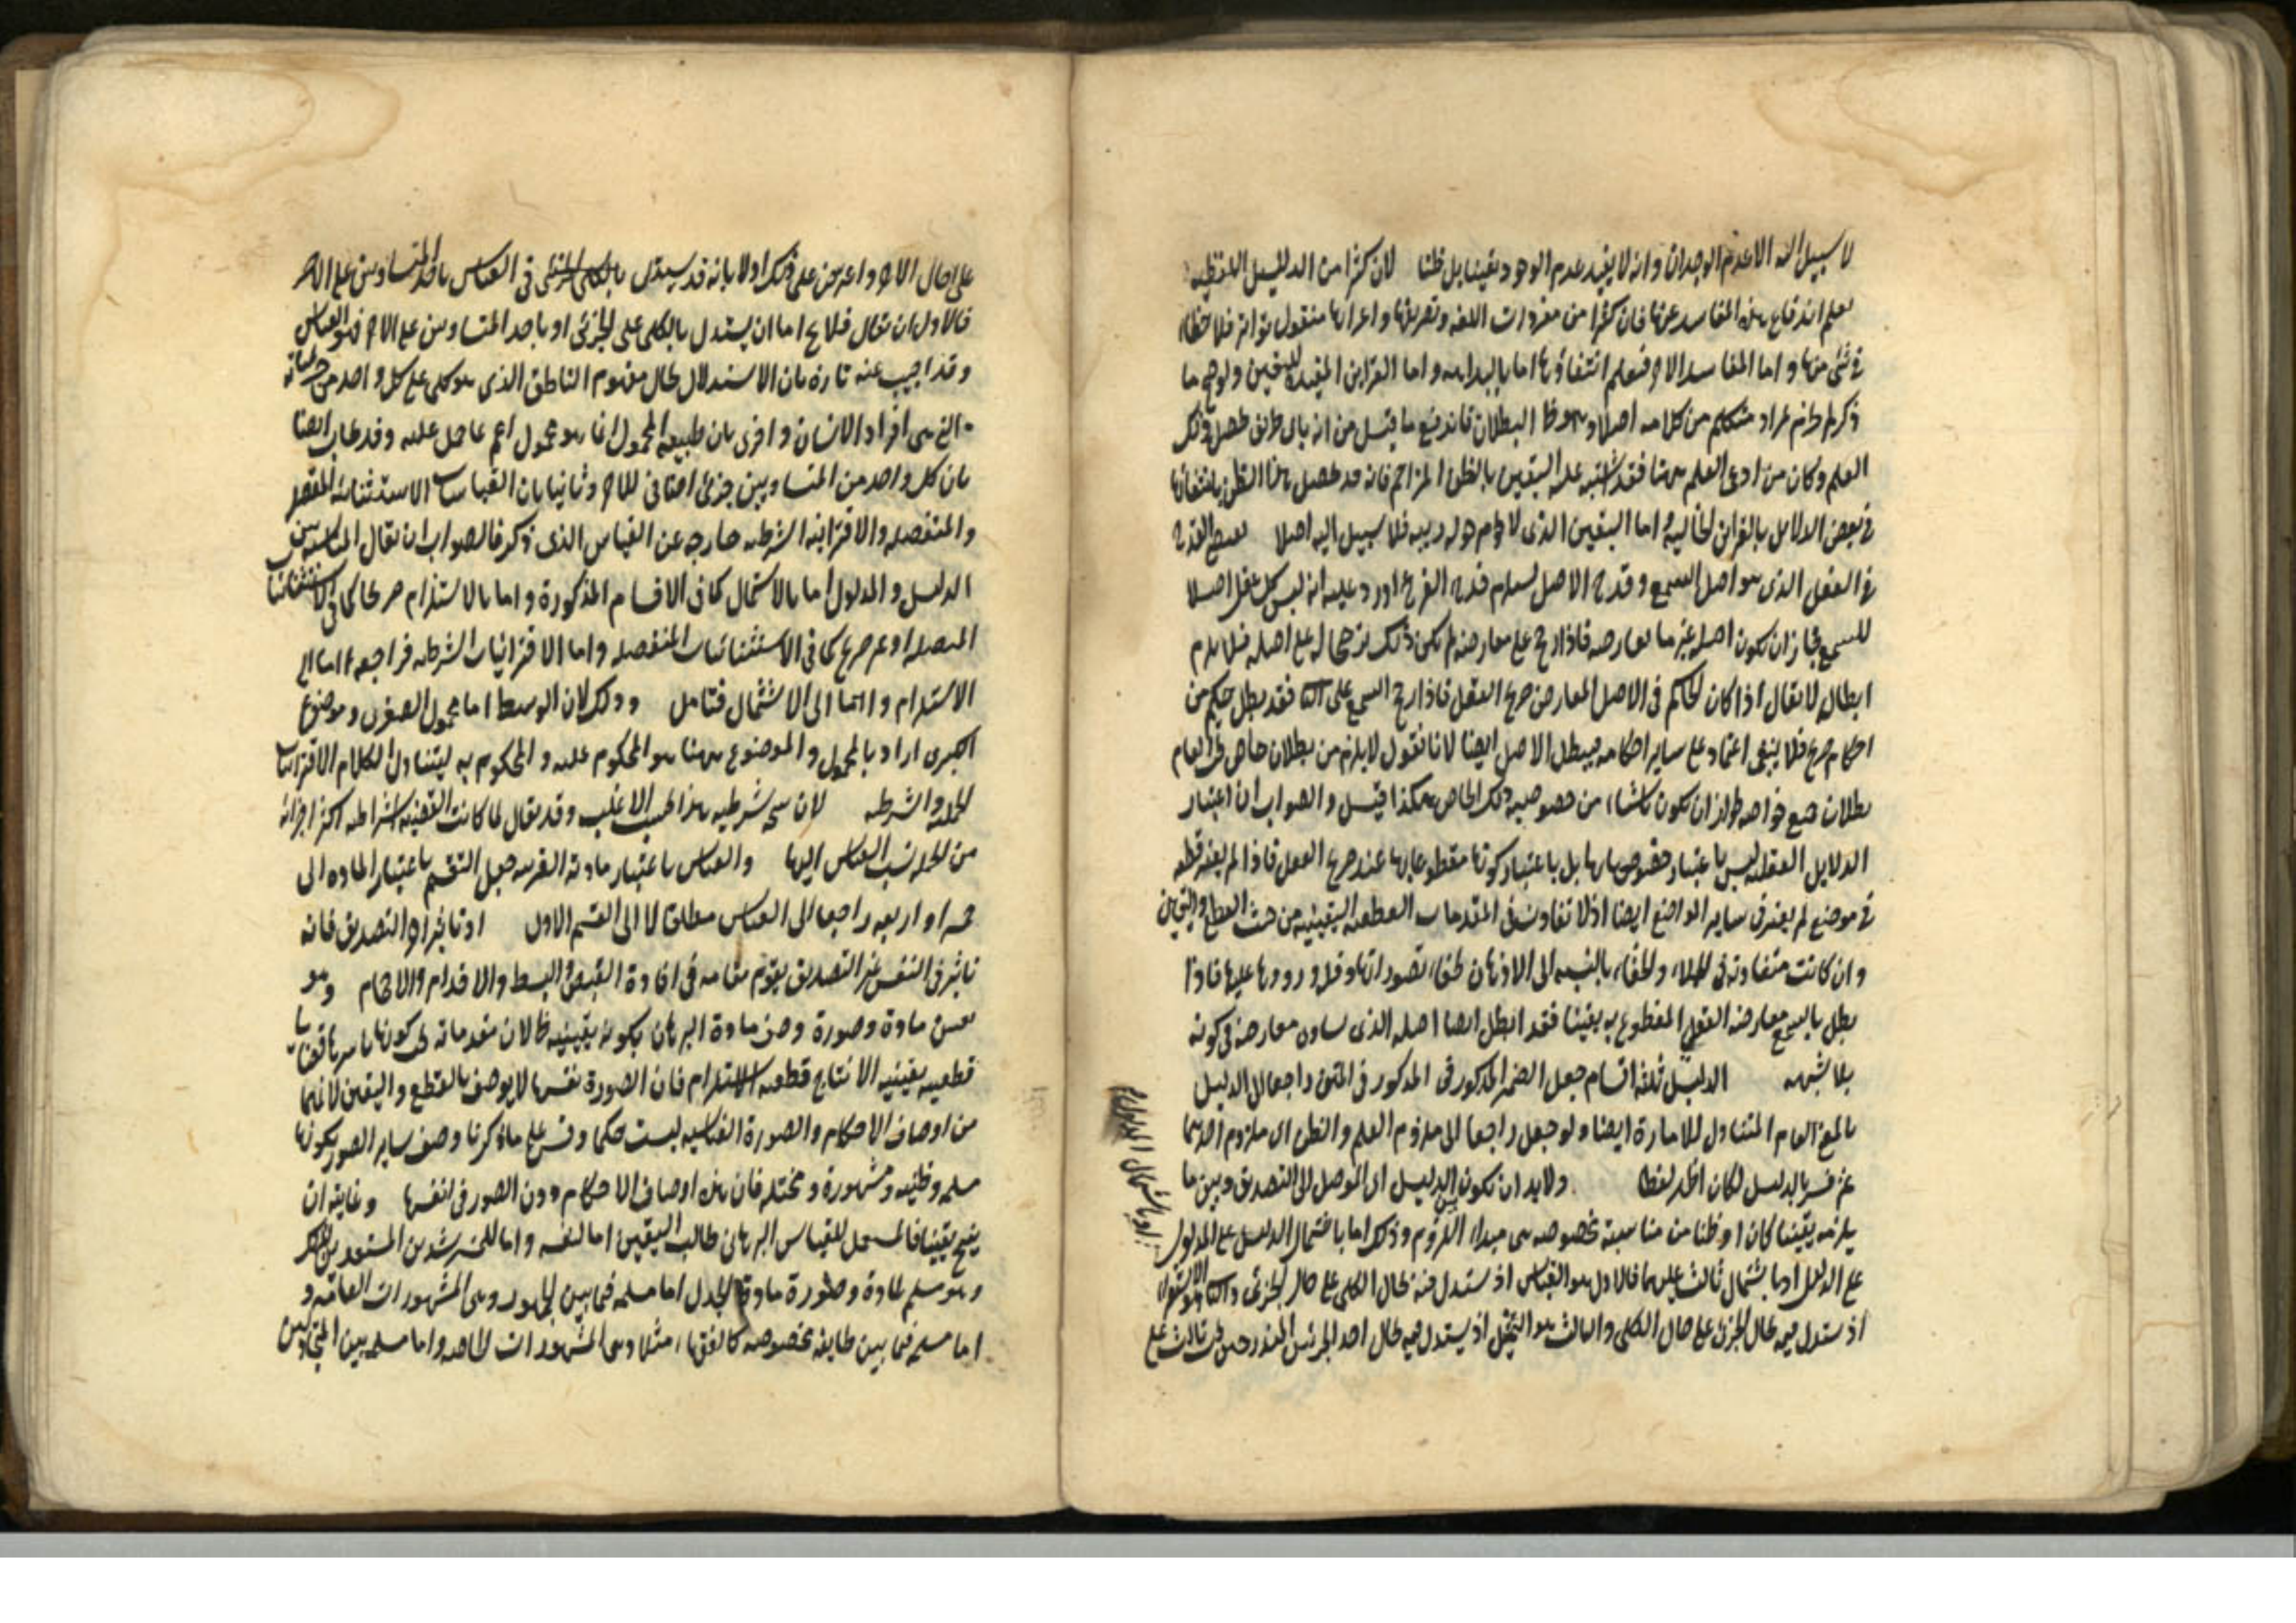 لا سبيل اليه الا عدم الوجدان وانه لا يفيد عدم الوجود يقينا بل ظنا لان كثرا من الدلايل اللفظيه
يعلم اندفاع هذه المفاسد عنها فان كثرا من مفردات اللغه وتصريفها واعرابها منقول تواترا فلا خطاء
في شئ منها واما المفاسد الاخر فنعلم انتفاؤها اما بالبداهه واما القراين المفيده لليقين ولوصح ما
ذكر لم يجزم بمراد متكلم من كلامه اصلا وهو ظ البطلان فاندفع ما قيل من انه باى طريق يحصل ذلك
العلم وكان من ادعى العلم ههنا فقد اشتبه عليه اليقين بالظن المزاحم فانه قد يحصل هذا الظن بانتفائها
في بعض الدلائل بالقراين الحاليه واما اليقين الذى لا يحوم حوله ريبه فلا سبيل اليه اصلا لقدح
في العقل الذى هو اصل السمع وقدح الاصل يستلزم قدح الفرع اورد عليه انه ليس كل عقل اصلا
للسمع فجاز ان يكون اصله غير ما يعارضه فاذا رجح على معارضه لم يكن ذلك ترجيحا له على اصله فلا يلزم
ابطاله لا يقال اذا كان الحاكم في الاصل المعارض صريح العقل فاذا رجح السمع على فقد بطل حكم من
احكام صريح فلا ينبغى اعتماد على ساير احكامه فيبطل الاصل ايضا لانا نقول لا يلزم من بطلان خاص العام
بطلان جميع خواصه لجواز ان يكون ناشئا من خصوصيه ذلك الخاص هكذا قيل والصواب ان اعتبار
الدلايل العقليه ليس باعتبار خصوصياتها بل باعتبار كونها مقطوعا بها عند صريح العقل فاذا لم يفد قطعه
في موضع لم يفد في ساير المواضع ايضا اذ لا تفاوت في المقدمات القطعيه اليقينيه من حيث القطع واليقين
وان كانت متفاوته في الجلاء والخفاء بالنسبه الى الاذهان لخفاء تصوراتها وقله ورودها عليها فاذا
بطل بالسمع معارضه العقلى المقطوع به يقينا فقد ابطل ايضا اصله الذى يساوى معارضه في كونه
بلا شبهه الدليل ثلثه اقسام جعل الضمير المذكور في المذكور في المتن راجعا الى الدليل
بالمعنى العام المتناول للامارة ايضا ولو جعل راجعا الى ملزوم العلم والظن اى ملزوم احدهما
ثم فسر بالدليل لكان اظهر لفظا ولابد ان يكون بين الدليل اى الموصل الى التصديق وبين ما
يلزمه يقينا كان او ظنا من مناسبة مخصوصه هى مبداء اللزوم وذلك اما باشتمال الدليل على المدلول
على الدليل او باشتمال ثالث عليهما فالاول هو القياس اذ يستدل فيه بحال الكلى على حال الجزئى
اذ يستدل فيه بحال الجزئى على حال الكلى والثالث هو التمثيل اذ يستدل فيه بحال احد الجزئيين المندرجين تحت ثالث على
على حال الاخر واعترض على ذلك اولا بانه قد يستدل في القياس باحد المتساويين على الاخر
فالاولى ان يقال فلاح اما ان يستدل بالكلى على الجزئى او باحد المتساويين على الاخر فهو القياس
وقد اجيب عنه تارة بان الاستدلال بحال مفهوم الناطق الذى هو كلى على كل واحد من جزئياته
التى هى افراد الانسان واخرى بان طبيعه المحمول انما هو محمول اعم مما حمل عليه وقد يجاب ايضا
بان كل واحد من المتساويين جزئى اضافى للاخر وثانيا بان القياسات الاستثنائيه المتصله
والمنفصله والاقترانيه الشرطيه خارجه عن القياس الذى ذكر فالصواب ان يقال المناسبه بين
الدليل والمدلول اما بالاشتمال كما في الاقسام المذكورة واما بالاستلزام صريحا كما في الاستثنائيات
المتصله او غير صريح كما في الاستثنائيات المنفصله واما الاقترانيات الشرطيه فراجعه اما الى
الاستلزام واما الى الاشتمال فتامل وذلك لان الوسط اما محمول الصغرى وموضوع
الكبرى اراد بالمحمول والموضوع ههنا هو المحكوم عليه والمحكوم به ليتناول الكلام الاقترانيات
الحمليه والشرطيه لان شرطيه هذا بحسب الاغلب وقد يقال لما كانت القضيه الشراطيه اكثر اجزائه
من الحمليه نسب القياس اليها والقياس باعتبار مادته القريبه جعل التقسيم باعتبار الماده الى
خمسه او اربعه راجعا الى القياس مطلقا لا الى القسم الاول او تاثيرا والتصديق فانه
تاثير في النفس غير التصديق يقوم مقامه في افادة القبض والبسط والاقدام والاحجام وهو
مادة وصورة وصف مادة البرهان بكونه يقينيه ظ لان مقدماته كونها باسرها
قطعيه يقينيه الانتاج قطعيه الاستلزام فان الصورة نفسها لا يوصف بالقطع واليقين لانهما
من اوصاف الاحكام والصورة القياسيه ليست حكما وقس على ما ذكرنا وصف ساير الصور بكونها
مسلمه وظنيه ومشهورة ومخيله فان هذه اوصاف الاحكام دون الصور في انفسها وغايته ان
ينتج يقينا فالمستعمل للقياس البرهانى طالب اليقين اما لنفسه واما للمسترشدين المستعدين
وهو مسلم مادة وصورة مادة الجدل اما مسلمه فيما بين الجمهور وهى المشهورات العامه و
اما مسلمه فيما بين طايفه مخصوصه كالفقهاء مثلا وهى المشهورات الخاصه واما مسلمه بين المتجادلين